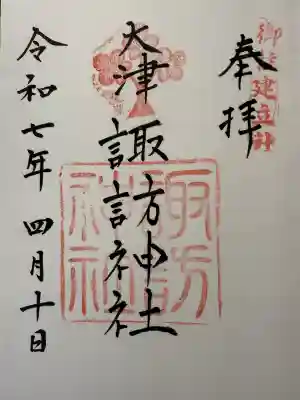 奉拝
大津諏訪神社
諏訪
神社
令和七年 四月十日